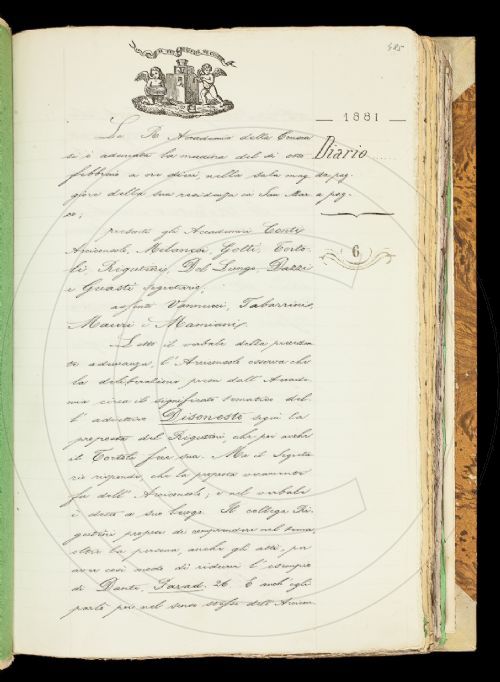 485
— 1881 —
Diario
6
La R. Accademia della Crusca
si è adunata la mattina del dì
febbraio a ore dieci, nella sala mag-
giore della sua residenza in San Marco
presenti gli Accademici Conti
Arciconsolo, Milanesi, Gotti, Torto-
li, Rigutini, Del Lungo, Dazzi
e Guasti segretario;
assenti Vannucci, Tabarrini,
Mauri e Mamiani.
Letto il verbale della preceden-
te adunanza, l'Arciconsolo osserva che
la deliberazione presa dall'Accade-
mia circa il significato tematico del-
l'adiettivo Disonesto seguì la
proposta del Rigutini, che poi anche
il Tortoli fece sua. Ma il Segreta-
rio risponde, che la proposta veramente
fu dell'Arciconsolo; e nel verbale
è detto a suo luogo. Il collega Ri-
gutini propose di comprendere nel tema,
oltre la persona, anche gli atti, per
aver così modo di ridurvi l'esempio
di Dante, Parad. 26. E anch'egli
parlò poi nel senso stesso dell'Arcicon-